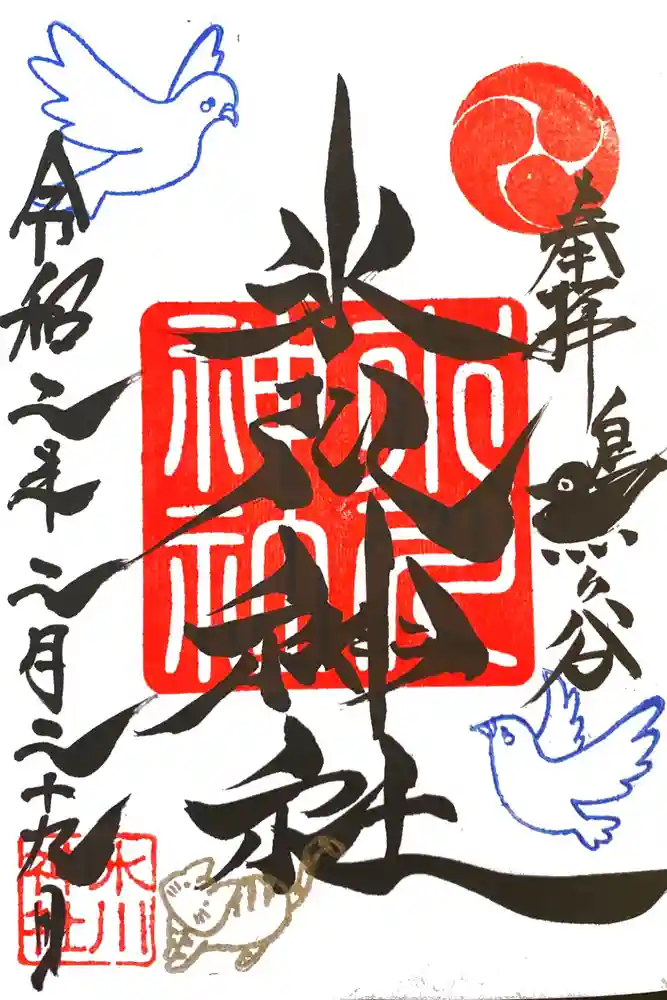 奉拝
鳩ヶ谷
氷川神社
令和二年二月二十九日
氷川神社
氷川神社